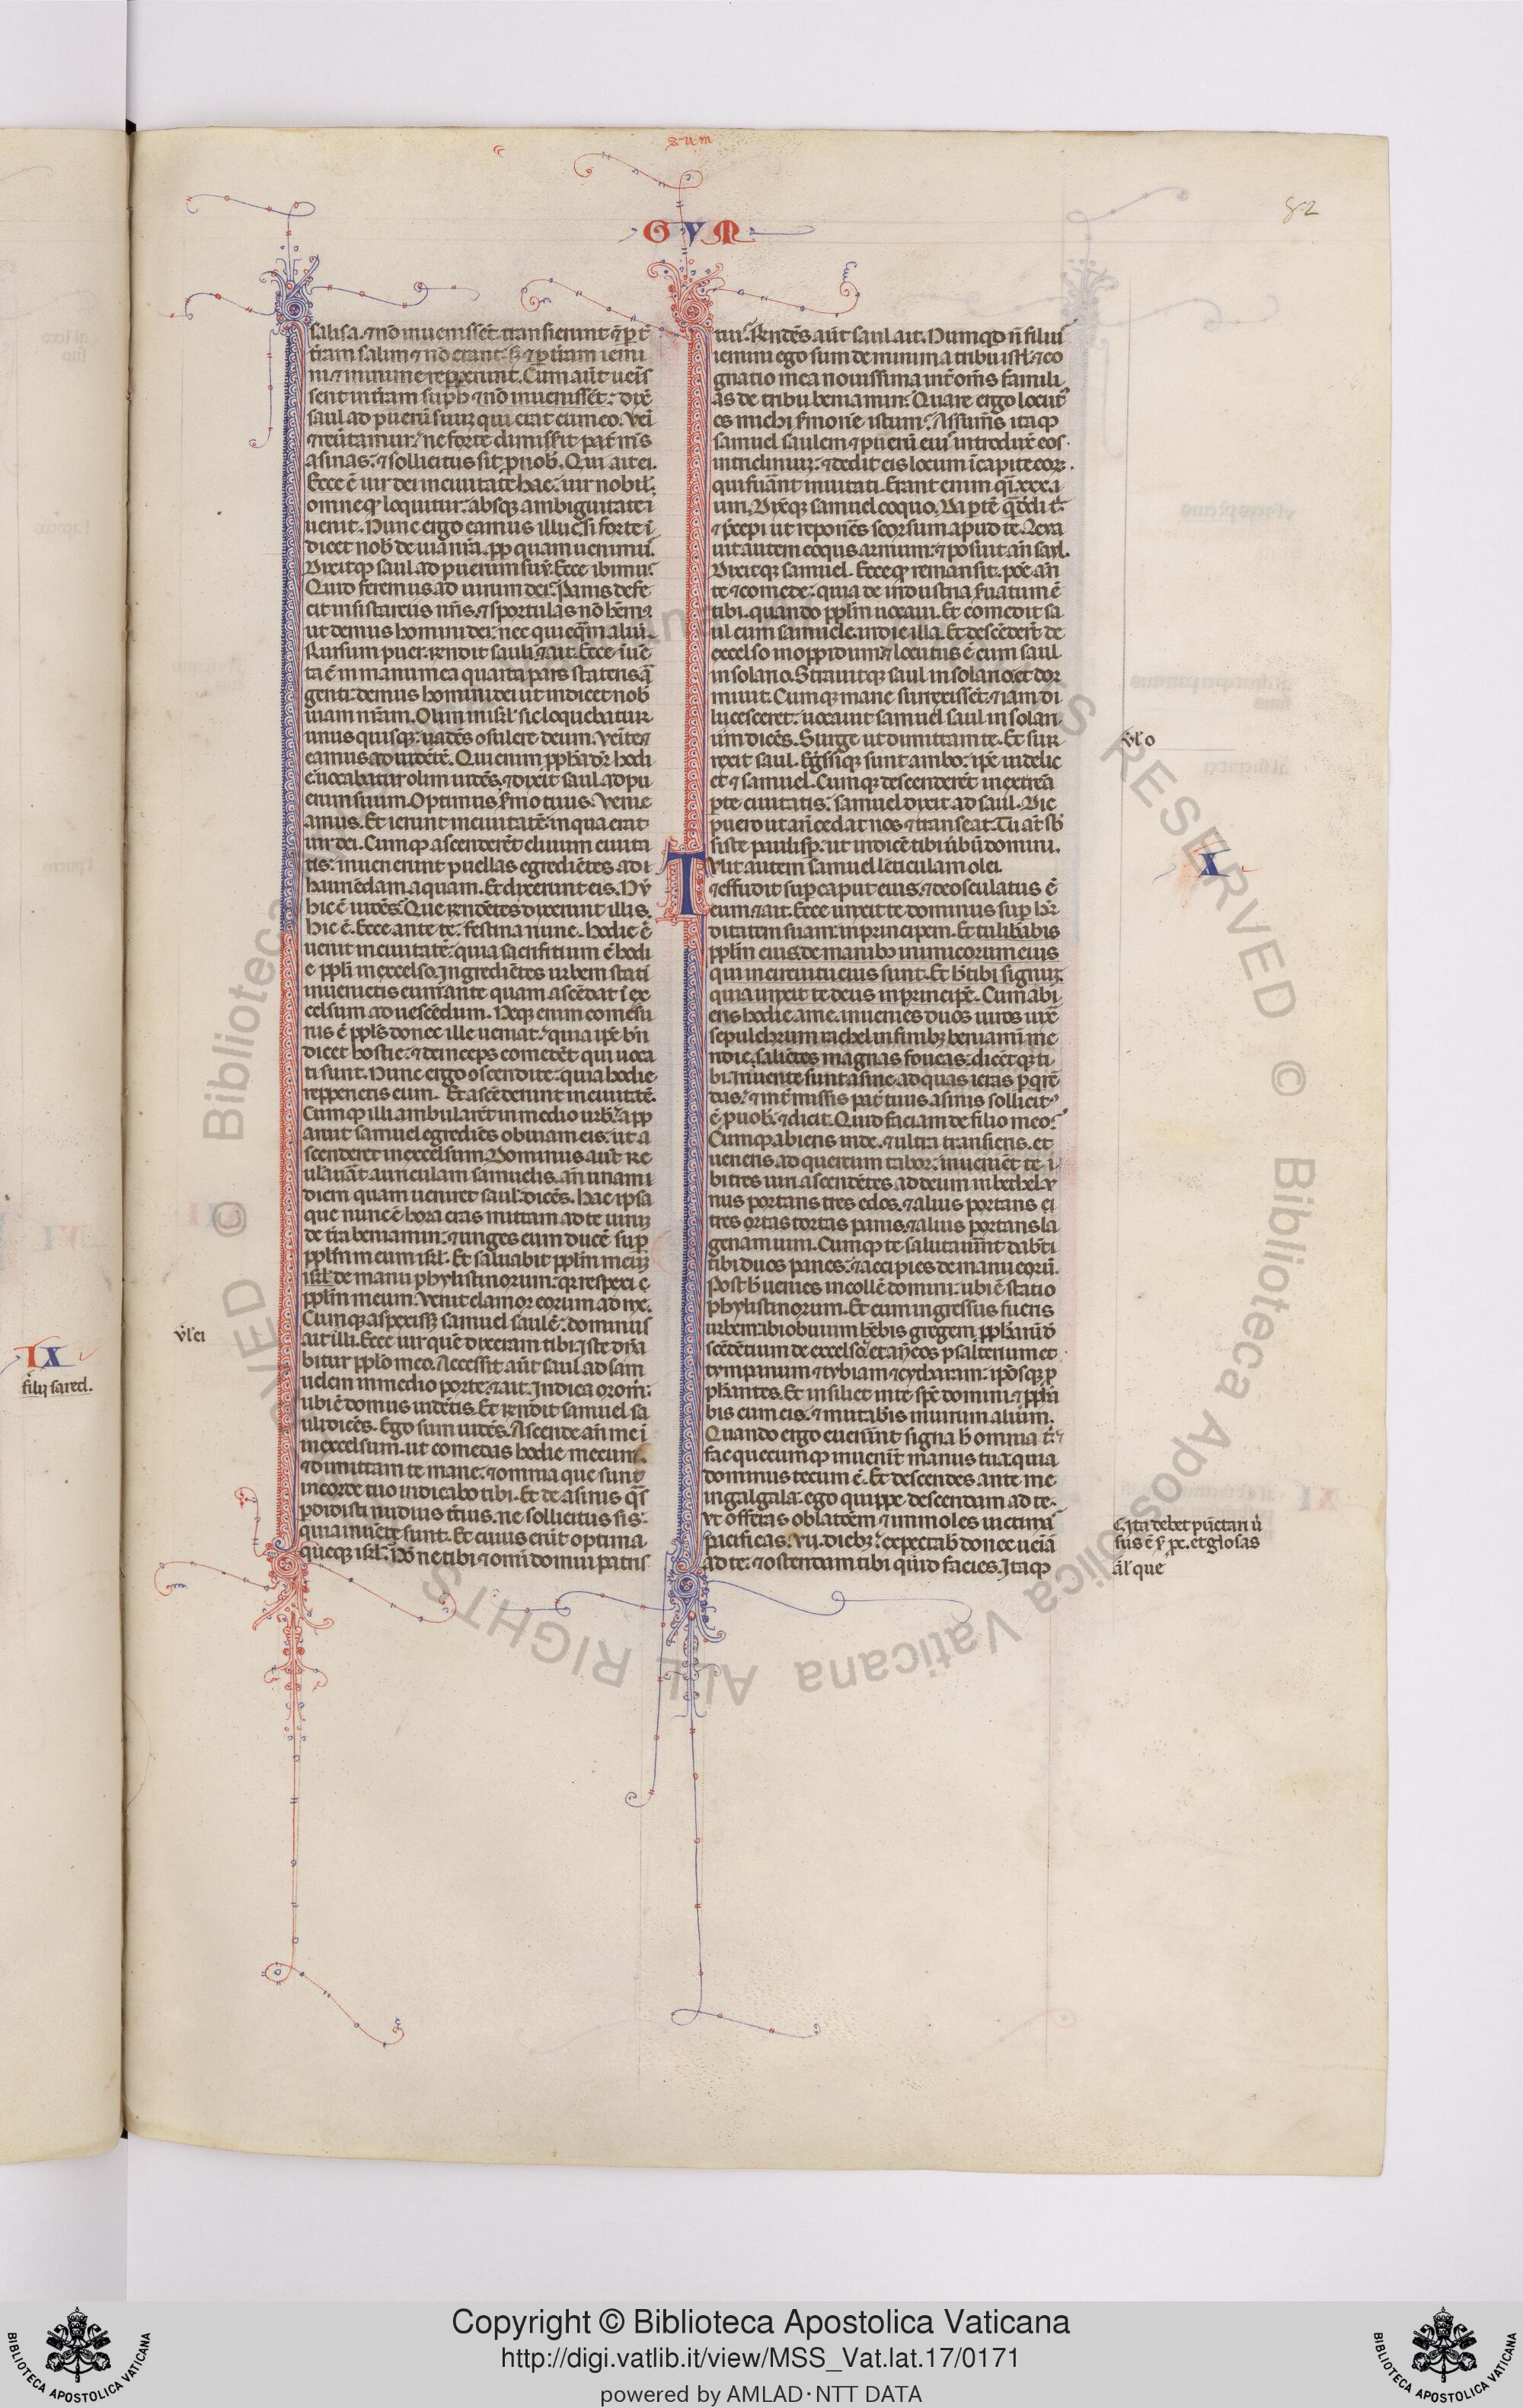 sum
GVM
82
salisa. ⁊ nō inuenissēt. transierunt ⁊ ꝑ t̄
t̄ram salim ⁊ nō erant. sꝫ ⁊ ꝑ t̄ram iemi
ni ⁊ minime reppererunt. Cum aūt uenis
sent in t̄ram suph ⁊ nō inuenissēt: dixē
saul ad pueꝝ suuꝫ qui erat cum eo. Veni
⁊ reūtamur: ne forte dimis̄it pat̄ m̄s
asinas. ⁊ sollicitus sit ꝓ nob̄. Qui ait ei.
Ecce ē uir dei in ciuitate hac. uir nobil̄.
omne qꝫ loquitur. absqꝫ ambiguitate
uenit. Nunc ergo eamus illuc. si forte ī
dicet nob̄ de uia n̄ra. ꝓp quam uenimus.
Dixitqꝫ saul ad puerum suū. Ecce ibimus.
Quid feremus ad uirum dei? Panis defe
cit in sistarciis nr̄is. ⁊ sportulas nō hēm⁹
ut demus homini dei. nec quicq̄m aliud.
Rursum puer. rendit sauli ⁊ ait. Ecce īuē
ta ē in manu mea quarta pars stateris ar̄
genti. demus homini dei ut indicet nob̄
uiam nr̄am. Olim in isrl̄ sic loquebatur
unus quisqꝫ: uadēs ꝯsulere deum. Venite ⁊
eamus ad uidētē. Qui enim ꝓph̄a dr̄ hodi
e. uocabatur olim uidēs. ⁊ dixit saul ad pu
erum suum. Optimus s̄mo tuus. Veni e
amus. Et ierunt in ciuitatē. in qua erat
uir dei. Cumqꝫ ascenderēt cliuum ciuita
tis: inuenerunt puellas egrediētes ad
hauriēdam aquam. Et dixerunt eis. Nū
hic ē uidēs? Que rendētes dixerunt illis.
hic ē. Ecce ante te. festina nunc. hodie ē
uenit in ciuitatē. quia sacrifitium ē hodi
e ppl̄i in excelso. Ingrediētes urbem stati
inuenietis eum ante quam ascēdat ī ex
celsum ad uescēdum. Neqꝫ enim comesu
rus ē ppl̄s donec ille ueniat. quia ip̄e bn̄
dicet hostie. ⁊ deinceps comedēt qui uoca
ti sunt. Nunc ergo ꝯscendite. quia hodie
repperietis eum. Et ascēderunt in ciuitatē.
Cumqꝫ illi ambularēt in medio urb̄. app
aruit samuel egrediēs obuiam eis. ut a
scenderet in excelsum. Dominus aūt re
uelauāt auriculam samuelis. an̄ unam
diem quam ueniret saul: dicēs. hac ipsa
que nunc ē hora cras mittam ad te uirūꝫ
de t̄ra beniamin: ⁊ unges eum ducē suꝑ
ppl̄m meum isrl̄. Et saluabit ppl̄m meūꝫ
isrl̄ de manu phylistinorum: qr̄ respexi
ppl̄m meum. Venit clamor eorum ad me.
Cumqꝫ aspexisꝫ samuel saulē. dominus
ait illi. Ecce uir quē dixeram tibi. iste dn̄a
bitur ppl̄o meo. Accessit aūt saul ad sam
uelem in medio porte. ⁊ ait. Indica oro m̄.
ubi ē domus uidētis. Et rendit samuel sa
uli dicēs. Ego sum uidēs. Ascende an̄ me ī
in excelsum. ut comedas hodie mecum.
⁊ dimittam te mane. ⁊ omnia que sunt
in corde tuo indicabo tibi. Et de asinis q̄s
ꝑdidisti nudius t̄tius. ne sollicitus sis.
quia inuēte sunt. Et cuius erūt optima
queqꝫ isrl̄? Nōne tibi ⁊ omni domui patris
tui? Rendēs aūt saul ait. Numquid n̄ filius
iemini ego sum de minima tribu isrl̄. ⁊ co
gnatio mea nouissima int̄ om̄s famili
as de tribu beniamin? Quare ergo locut⁹
es michi s̄monē istum? Assumēs itaqꝫ
samuel saulem ⁊ pueꝝ eius introduxit eos
in triclinuꝫ. ⁊ dedit eis locum ī capite eoꝝ
qui fuāant inuitati. Erant enim q̄i xxx. ui
um. Dixitqꝫ samuel coquo. Da ptē q̄ dedi t̄.
⁊ p̄cepi ut reponēs seorsum apud te. Leua
uit autem coqus armum. ⁊ posuit an̄ saul.
Dixitqꝫ samuel. Ecce qꝫ remansit. pōe an̄
te ⁊ comede: quia de industria s̄uatum ē
tibi. quando ppl̄m uocaui. Et comedit sa
ul cum samuele in die illa. Et descēderūt de
excelso in oppidum. ⁊ locutus ē cum saul
in solario. Strauitqꝫ saul in solario. et dor
miuit. Cumqꝫ mane surrexissēt. ⁊ iam di
lucesceret. uocauit samuel saul in solari
um dicēs. Surge ut dimittam te. Et sur
rexit saul. Egr̄siqꝫ sunt ambo. ip̄e uidelic
et ⁊ samuel. Cumqꝫ descenderēt in extrēa
ꝑte ciuitatis. samuel dixit ad saul. Dic
puero ut an̄cedat nos ⁊ transeat. Tu aūt sb̄
siste paulisꝑ. ut indicē tibi ūbū domini.
Tulit autem samuel lēticulam olei.
⁊ effudit suꝑ caput eius. ⁊ deosculatus ē
eum ⁊ ait. Ecce unxit te dominus suꝑ her̄
ditatem suam. in principem. Et tu lib̄abis
ppl̄m eius de manibꝫ inimicorum eius
qui in circuitu eius sunt. Et h̄ tibi signūꝫ
quia unxit te deus in principē. Cum abi
eris hodie a me. inuenies duos uiros iuxt̄
sepulchrum rachel in finibꝫ beniamī me
ridie. saliētes magnas foueas. dicētqꝫ ti
bi. Inuente sunt asine. ad quas ieras ꝑqrē
das. ⁊ int̄missis pat̄ tuus asinis sollicit⁹
ē ꝓ uob̄. ⁊ dicit. Quid faciam de filio meo?
Cumqꝫ abieris inde. ⁊ ultra transieris. et
ueneris ad quercum tabor: inueniēt te i
bi tres uiri ascendētes ad deum in bethel. v
nus portans tres edos. ⁊ alius portans ei
tres ortas tortas panis. ⁊ alius portans la
genam uini. Cumqꝫ te salutauint dabūt
tibi duos panes. ⁊ accipies de manu eorū.
Post h̄ uenies in collē domini: ubi ē statio
phylistinorum. Et cum ingressus fueris
urbem: ibi obuium hēbis gregem ꝓph̄arū d̄
scēdētium de excelso. et an̄ eos psalterium et
tympanum ⁊ tybiam ⁊ cytharam: ip̄osqꝫ ꝓ
ph̄antes. Et insiliet in te spc̄ domini. ⁊ ꝓph̄a
bis cum eis. ⁊ mutab̄is in uirum alium.
Quando ergo euenīnt signa h̄ omnia t̄.
fac quecumqꝫ inuenīt manus tua. quia
dominus tecum ē. Et descendes ante me
in galgala. ego quippe descendam ad te.
Vt offeras oblatōem ⁊ immoles uictimas
pacificas. vii. diebꝫ expectab̄ donec ueniā
ad te. ⁊ ostendam tibi quid facies. Itaqꝫ
v̄l ei
v̄l o
X
IX
filij sared.
Ita debet pūctari ū
sus ē ꝟ pc. et glosas
al̄ que
Copyright © Biblioteca Apostolica Vaticana
http://digi.vatlib.it/view/MSS_Vat.lat.17/0171
powered by AMLAD·NTT DATA
BIBLIOTECA APOSTOLICA VATICANA
BIBLIOTECA APOSTOLICA VATICANA
© Biblioteca Apostolica Vaticana ALL RIGHTS RESERVED